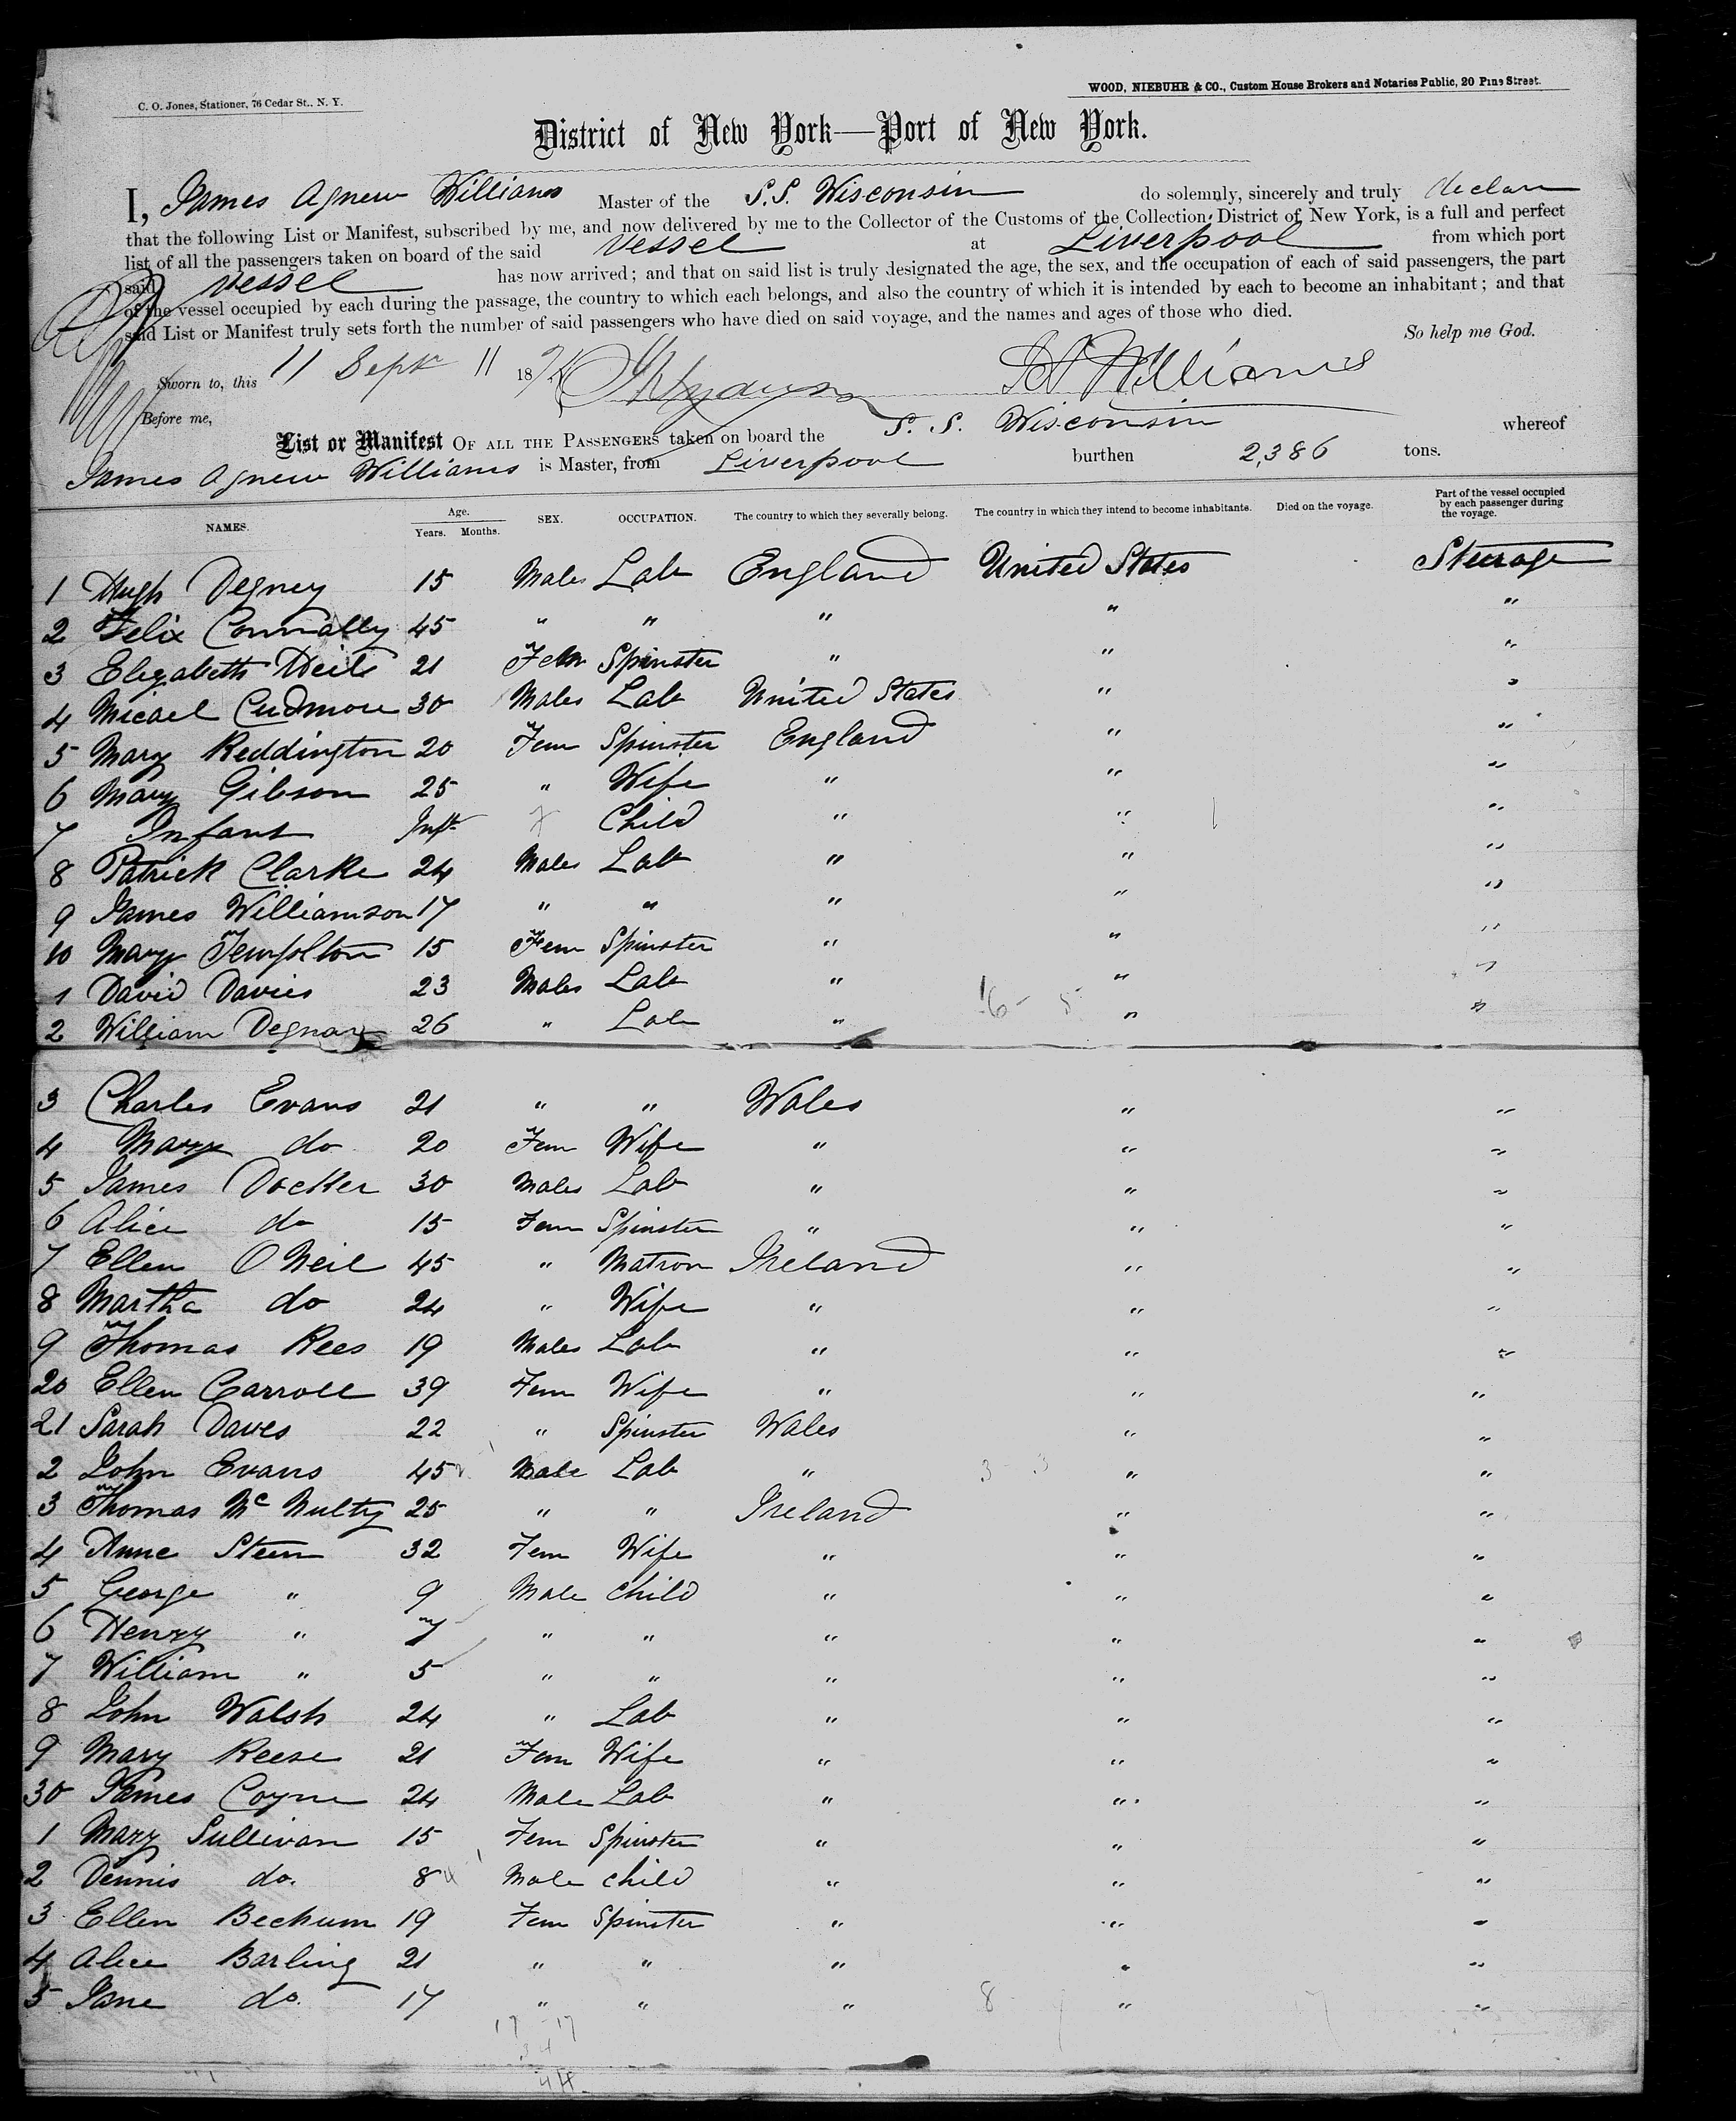 C. O. Jones, Stationer, 76 Cedar St., N. Y.
WOOD, NIEBUHR & CO., Custom House Brokers and Notaries Public, 20 Pine Street.
District of New York—Port of New York.
I, James Agnew Williams Master of the S.S. Wisconsin do solemnly, sincerely and truly declare
that the following List or Manifest, subscribed by me, and now delivered by me to the Collector of the Customs of the Collection District of New York, is a full and perfect
list of all the passengers taken on board of the said Vessel at Liverpool from which port
said vessel has now arrived; and that on said list is truly designated the age, the sex, and the occupation of each of said passengers, the part
of the vessel occupied by each during the passage, the country to which each belongs, and also the country of which it is intended by each to become an inhabitant; and that
said List or Manifest truly sets forth the number of said passengers who have died on said voyage, and the names and ages of those who died.
So help me God.
Sworn to, this 11 Sept 11 18 Williams
Before me,
List or Manifest OF ALL THE PASSENGERS taken on board the S. S. Wisconsin whereof
James Agnew Williams is Master, from Liverpool burthen 2,386 tons.
NAMES. Age. Years. Months. SEX. OCCUPATION. The country to which they severally belong. The country in which they intend to become inhabitants. Died on the voyage. Part of the vessel occupied by each passenger during the voyage.
1 Hugh Degney 15 Males Lab England United States Steerage
2 Felix Connally 45 " " " " "
3 Elizabeth 21 Fem Spinster " " "
4 Micael Cudmore 30 Males Lab United States " "
5 Mary Reddington 20 Fem Spinster England " "
6 Mary Gibson 25 " Wife " " "
7 Infant Inft Child " " "
8 Patrick Clarke 24 Males Lab " " "
9 James Williamson 17 " " " " "
10 Mary Templton 15 Fem Spinster " " "
1 David Davies 23 Males Lab " " "
2 William Degnay 26 " Lab " " "
3 Charles Evans 21 " " Wales " "
4 Mary do 20 Fem Wife " " "
5 James Docker 30 Males Lab " " "
6 Alice do 15 Fem Spinster " " "
7 Ellen O Neil 45 " Matron Ireland " "
8 Martha do 24 " Wife " " "
9 Thomas Rees 19 Males Lab " " "
20 Ellen Carroll 39 Fem Wife " " "
21 Sarah Daves 22 " Spinster Wales " "
2 John Evans 45 Male Lab " " "
3 Thomas Mc Nulty 25 " " Ireland " "
4 Anne Steen 32 Fem Wife " " "
5 George " 9 Male Child " " "
6 Henry " 7 " " " " "
7 William " 5 " " " " "
8 John Walsh 24 " Lab " " "
9 Mary Reese 21 Fem Wife " " "
30 James Coyne 24 Male Lab " " "
1 Mary Sullivan 15 Fem Spinster " " "
2 Dennis do. 8 Male child " " "
3 Ellen Bechum 19 Fem Spinster " " "
4 Alice Barling 21 " " " " "
5 Jane do. 17 " " " " "
17 - 17
34